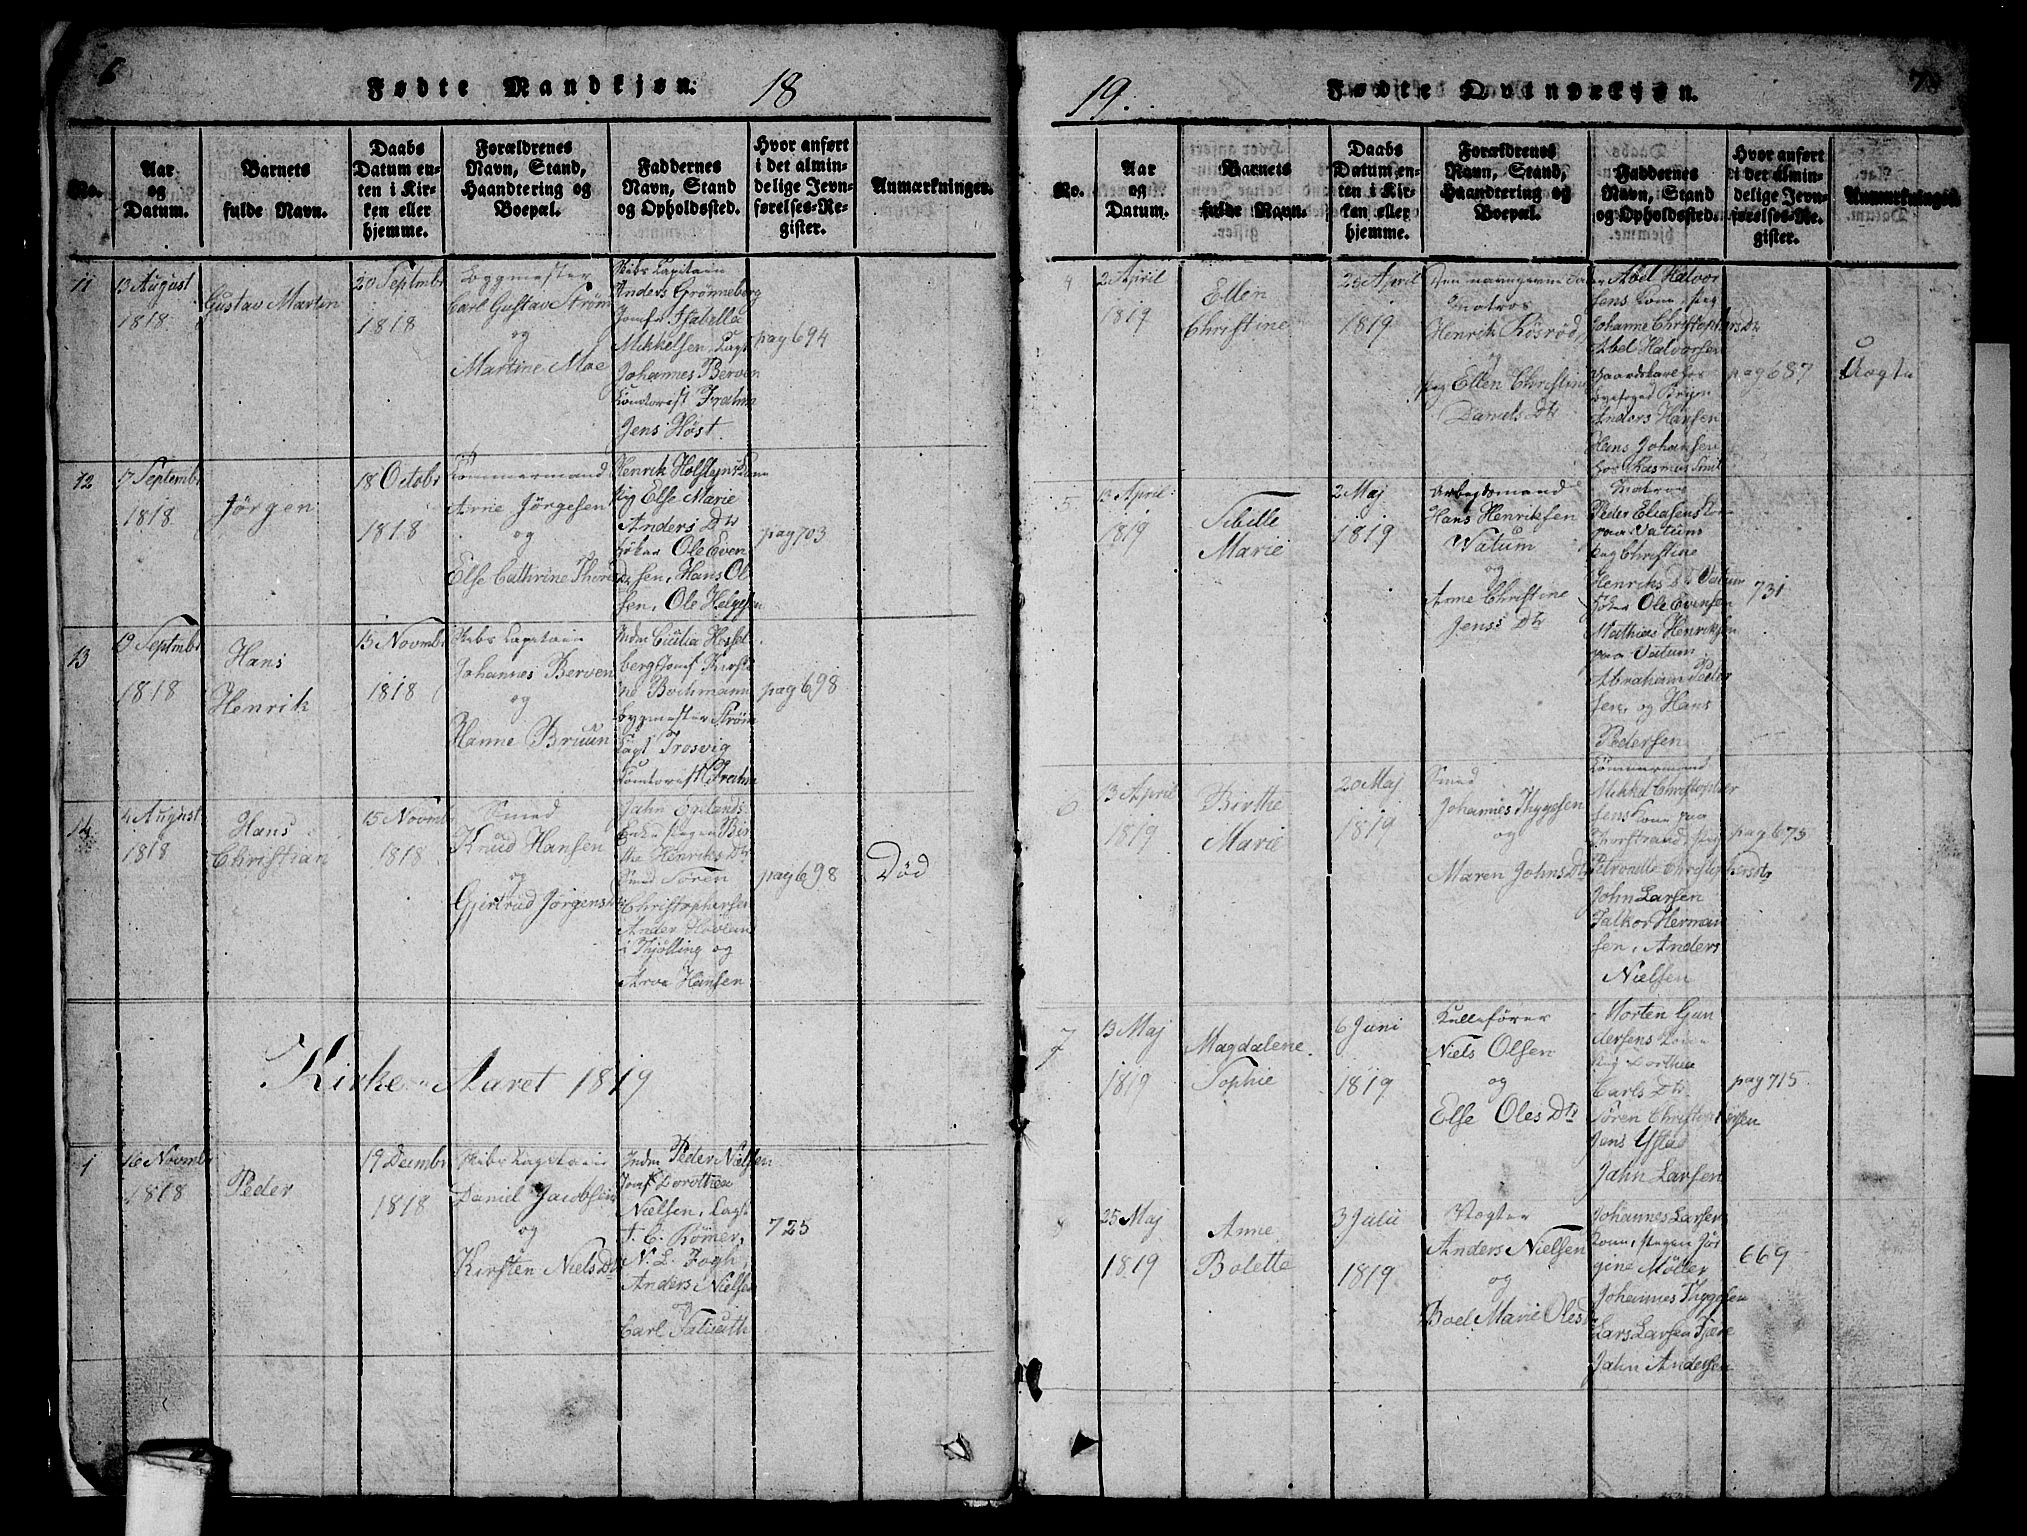 6
Fødte Mandkjøn.
18
No.
Aar
og
Datum.
Barnets
fulde Navn.
Daabs
Datum en-
ten i Kir-
ken eller
hjemme.
Forældrenes
Navn, Stand,
Haandtering og
Boepæl.
Faddernes
Navn, Stand
og Opholdssted.
Hvor anført
i det almin-
delige Jevn-
førelses-Re-
gister.
Anmærkninger.
11
13 August
1818.
Gustav Martin
20 Septmbr
1818
Byggmester
Carl Gustav Strøm
og
Martine Moe
Skibs Capitain
Anders Grønneborg
Jomf. Isabella
Mikkelsen, Capt
Johannes Berven
Contorist Frahm
Jens Høst.
pag 694
12
17 Septembr
1818.
Jørgen
18 Octobr
1818
Tømmermand
Arne Jørgesen
og
Else Cathrine Thors D
Henrik Holsteins Kone
pig Else Marie
Anders Dtr
Høker Ole Even
sen, Hans Ol
sen, Ole Helgesen
pag 703
13
19 Septmbr
1818
Hans
Henrik
15 Novmbr
1818
Skibs Capitain
Johannes Berven
og
Hanne Bruun
Mdm Cicilia Hessel
berg Jomf Kirsti
ne Bochmann
Bygmester Strøm
Capt Trosvig
Contorist Frahm
pag 698
14
4 August
1818
Hans
Christian
15 Novmbr
1818
Smed
Knud Hansen
og
Gjertrud Jørgens Dtr
Jahn Enlands
Enke pigen Bir
the Henriks Dtr
Smed Søren
Christophersen
Ander Hovland
i Thjølling og
Arve Hansen
pag 698
Død
Kirke-Aaret 1819
1
16 Novmbr
1818
Peder
19 Decmbr
1818
Skibs Capitain
Daniel Jacobsen
og
Kirsten Niels Dtr
Mdm Peder Nielsen
Jomf Dorothea
Nielsen, Capt
J. C. Rømer,
N. L. Fogh,
Anders Nielsen
og
Carl
725
19.
Fødte Qvindekjøn.
7
No.
Aar
og
Datum.
Barnets
fulde Navn.
Daabs
Datum en-
ten i Kir-
ken eller
hjemme.
Forældrenes
Navn, Stand,
Haandtering og
Boepæl.
Faddernes
Navn, Stand
og Opholdssted.
Hvor anført
i det almin-
delige Jevn-
førelses-Re-
gister.
Anmærkninger.
4
2 April
1819
Ellen
Christine
23 April
1819
Den navngivne Fader
Matros
Henrik Røsrød
og
pig Ellen Christine
Daniels Dtr
Abel Halvor
sens Kone, pig
Johanne Christophers Dtr
Abel Halvorsen
Anders Hansen
Hans Johansen
hos Rasmus Smit
pag 687
Uægte
5
13 April
1819
Sibille
Marie
2 Maj
1819
Arbejdsmand
Hans Henriksen
Vatum
og
Anne Christine
Jens Dtr
Matros
Peder Eliasens Kone
paa Vatum
pig Christine
Henriks Dtr Vatum
Høker Ole Evensen
Mathias Henriksen
paa Vatum
Abraham Peder
sen, og Hans
Pedersen
731
6
13 April
1819
Birthe
Marie
20 Maj
1819
Smed
Johannes Thygesen
og
Maren Johns Dtr
Tømmermand
Mikkel Christopher
sens Kone paa
Thorstrand, pig
Petronelle Christophersdtr
John Larsen
Falkor Herman
sen, Anders
Nielsen
pag 673
7
13 Maj
1819
Magdalene
Sophie
6 Juni
1819
Kullefører
Niels Olsen
og
Else Oles Dtr
Morten Gun
dersens Kone
pig Dorthea
Carls Dtr
Søren Christophersen
Jens Ystad
Jahn Larsen
pag 715
8
25 Maj
1819
Anne
Bolette
3 Julii
1819
Vægter
Anders Nielsen
og
Boel Marie Olesd
Johannes Larsens
Kone, pigen Jør
gine Møller
Johannes Thygesen
Lars Larsen Fjære
Jahn Andersen
669